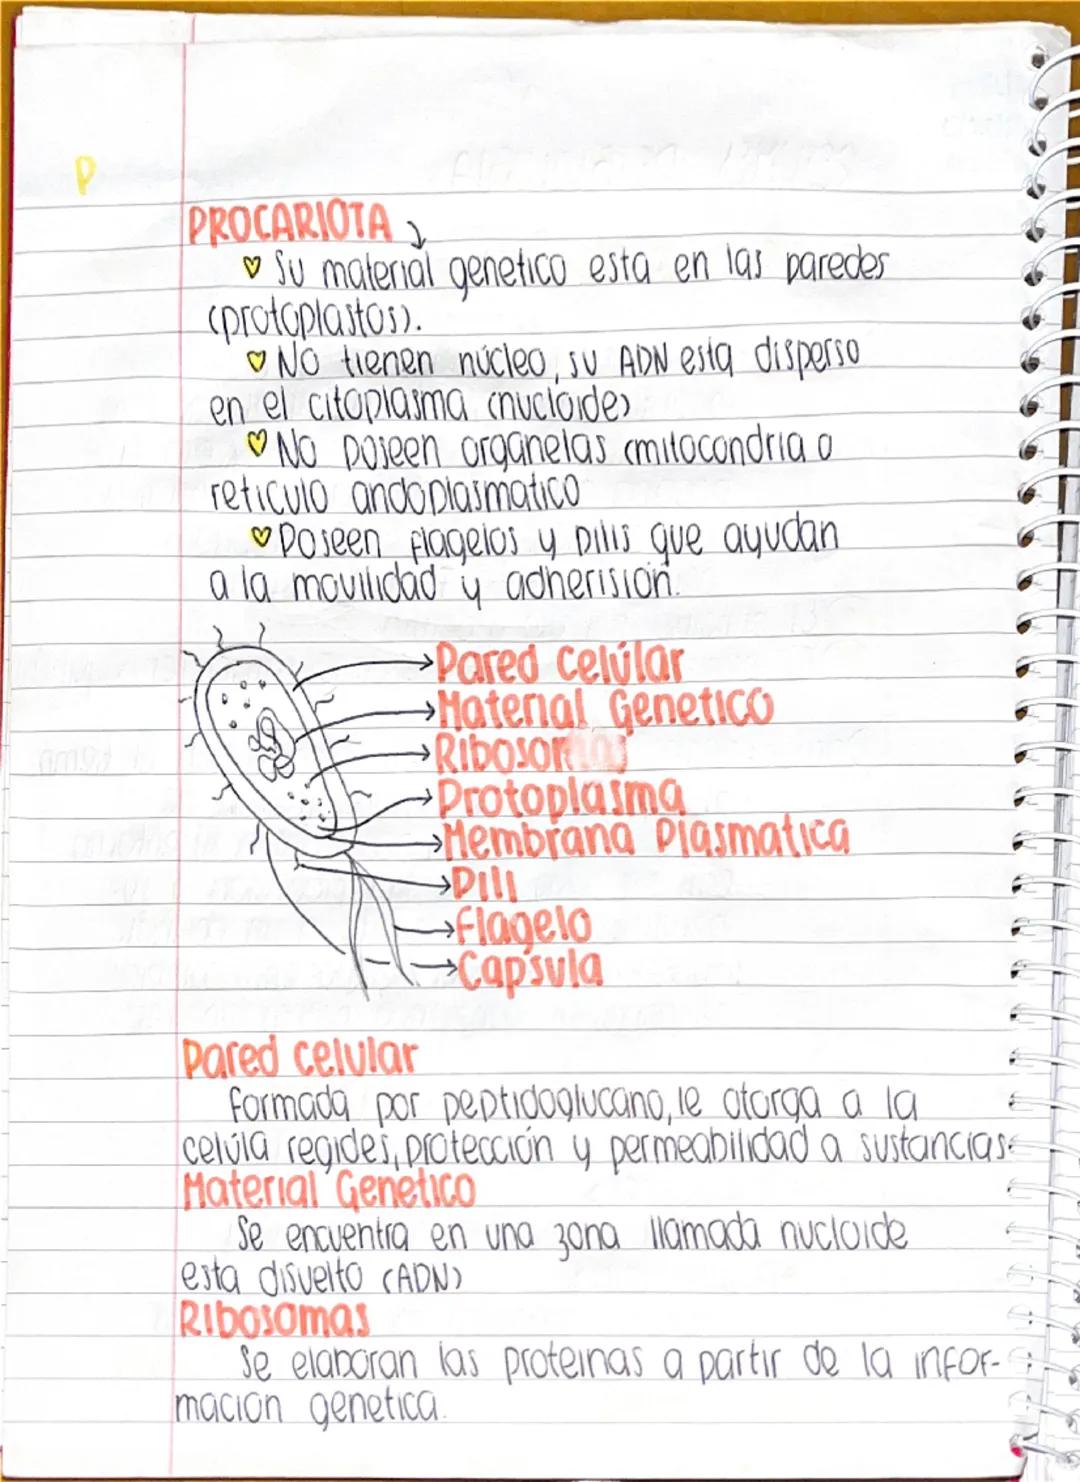 P
PROCARIOTA
♡ Su material genetico esta en las paredes
(protoplastos).
♡ No tienen núcleo, su ADN esta disperso
en el citoplasma (nucloide)
♡ No poseen organelas (mitocondria o
reticulo andoplasmatico
♡ Poseen flagelos y pilis que ayudan
a la movilidad y adherisión.
Pared celúlar
Material Genetico
Ribosomas
Protoplasma
Membrana Plasmatica
Pili
Flagelo
Capsula
Pared celular
Formada por peptidoglucano, le otorga a la
celúla regides, protección y permeabilidad a sustancias.
Material Genetico
Se encuentra en una zona llamada nucloide
esta disuelto (ADN)
Ribosomas
Se elaboran las proteinas a partir de la infor-
mación genetica.